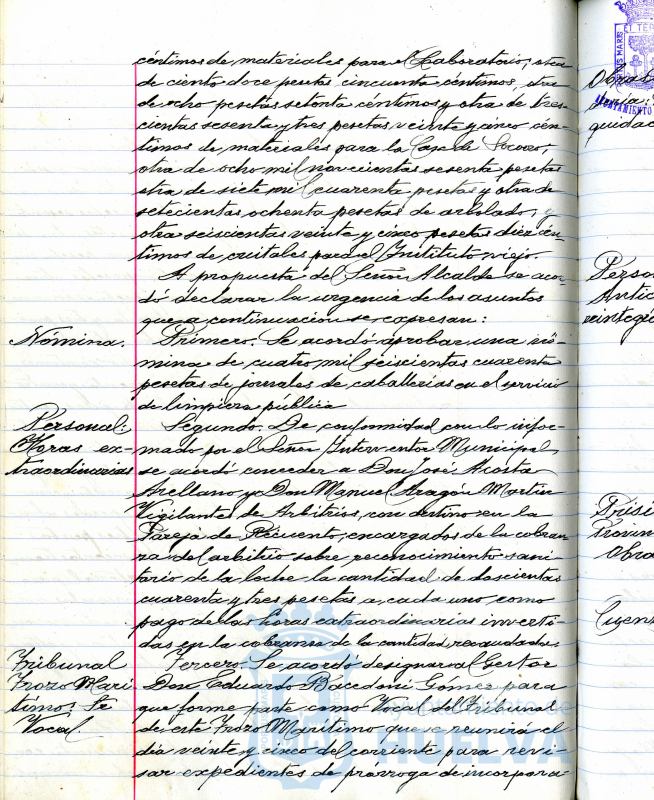 céntimos de materiales para el Laboratorio; otra
de ciento doce pesetas cincuenta céntimos, otra
de ocho pesetas setenta céntimos y otra de tres-
cientas sesenta y tres pesetas veinte y cinco cén-
timos de materiales para la Casa de Socorro;
otra de ocho mil novecientas sesenta pesetas
otra de siete mil cuarenta pesetas y otra de
setecientas ochenta pesetas de arbolado; y
otra seiscientas veinte y cinco pesetas diez cén-
timos de cristales para el Instituto viejo.
A propuesta del Señor Alcalde se acor-
dó declarar la urgencia de los asuntos
que a continuación se expresan:
Nómina.
Primero. Se acordó aprobar una nó-
mina de cuatro mil seiscientas cuarenta
pesetas de jornales de caballerías en el servicio
de limpieza pública
Personal:
Horas ex-
traordinarias
Segundo. De conformidad con lo infor-
mado por el Señor Interventor Municipal,
se acordó conceder a Don José Acosta
Arellano y Don Manuel Aragón Martín
Vigilantes de Arbitrios, con destino en la
Pareja de Recuento, encargados de la cobran
za del arbitrio sobre reconocimiento sani-
tario de la leche la cantidad de doscientas
cuarenta y tres pesetas a cada uno, como
pago de las horas extraordinarias inverti-
das en la cobranza de la cantidad recaudada.
Tribunal
Trozo Marí
timo:
Vocal.
Tercero. Se acordó designar al Gestor
Don Eduardo Gómez para
que forme parte como Vocal del Tribunal
de este Trozo Marítimo que se reunirá el
día veinte y cinco del corriente para revi-
sar expedientes de prórroga de incorpora-
HUELVA